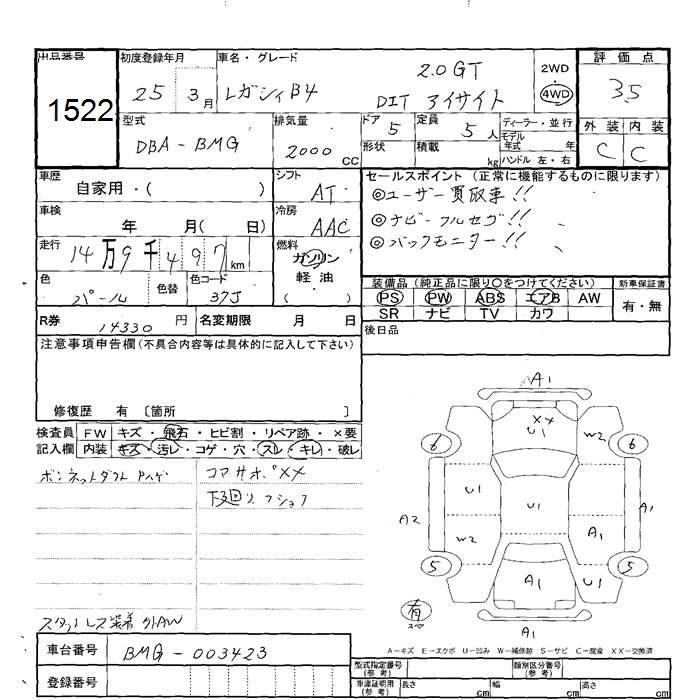 出品番号 初度登録年月 車名・グレード 評価点
1522 25 3月 レガシィB4 2.0GT 2WD 3.5
DIT アイサイト 4WD
型式 排気量 ドア 定員 ディーラー・並行 外装 内装
DBA-BMG 2000cc 5 5人 モデル年式 年 C C
形状 積載 kg ハンドル 左・右
車歴 シフト セールスポイント(正常に機能するものに限ります)
自家用・( ) AT ◎ユーザー買取車!!
車検 冷房 ◎ナビ-フルセグ!!
年 月( 日) AAC ◎バックモニター!!
走行 燃料
14万9千497km ガソリン
色 色替 色コード 軽油
パール 37J ( )
装備品(純正品に限り○をつけてください) 新車保証書
PS PW ABS エアB AW 有・無
SR ナビ TV カワ
R券 14330円 名変期限 月 日
後日品
注意事項申告欄(不具合内容等は具体的に記入して下さい)
修復歴 有 〔箇所 〕
検査員 FW キズ・飛石・ヒビ割・リペア跡・×要
記入欄 内装 キズ・汚レ・コゲ・穴・スレ・キレ・破レ
ボンネットダクト コアサポXX
下廻り
A1
XX
U1 W2
6 6
U1 U1 A1
A2
W2 A1
5 5
A1 U1
有
スペア
A1
スタットレス装着
A-キズ E-エクボ U-凹み W-補修跡 S-サビ C-腐食 XX-交換済
車台番号 BMG-003423
登録番号
型式指定番号(参考) 類別区分番号(参考)
車庫証明用(参考) 長さ cm 幅 cm 高さ cm